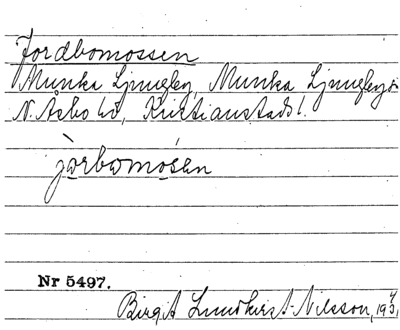 Jordbomossen
Munka Ljungby, Munka Ljungby s:n
N. Åsbo hd, Kristianstads l.
jòrbomósen
Nr 5497.
Birgit Lundkvist-Nilsson,